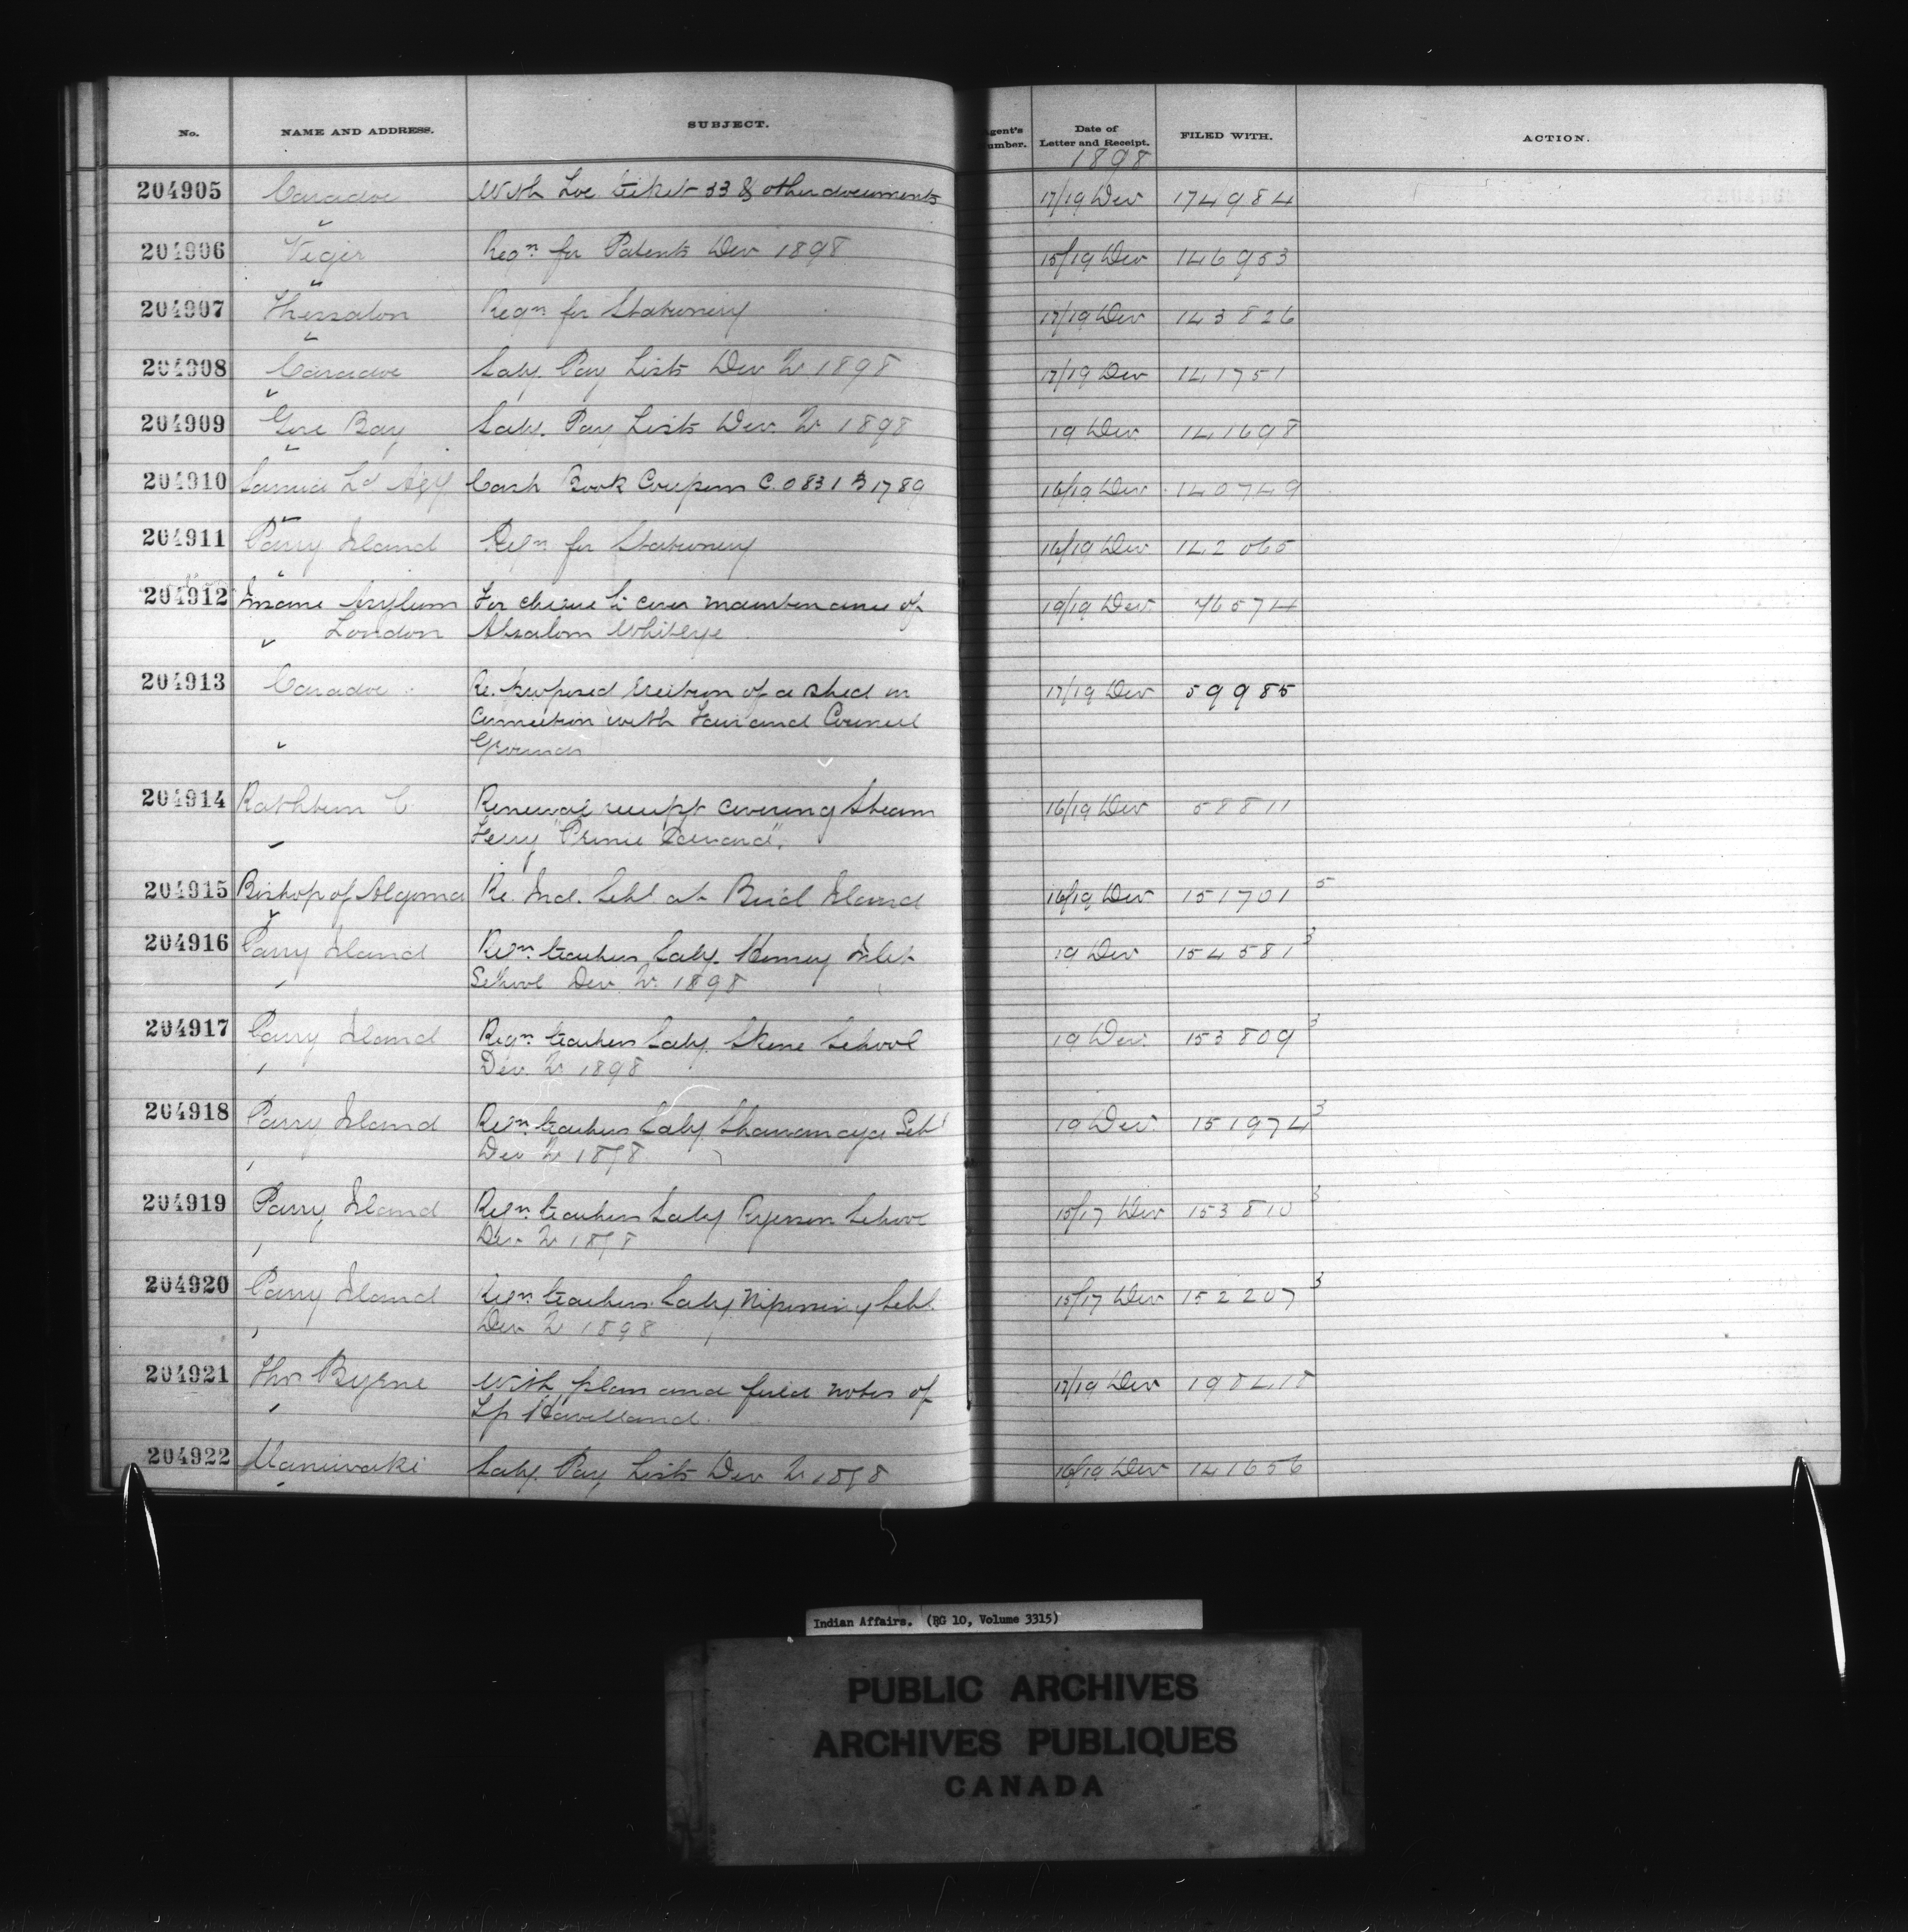 No. NAME AND ADDRESS. SUBJECT. Agent's Number. Date of Letter and Receipt. FILED WITH. ACTION.
1898
204905 Caradoc With Loc ticket 33 & other documents 17/19 Dec 174984
204906 Regn for Patents Dec 1898 15/19 Dec 146953
204907 Thessalon Reqn for Stationery 17/19 Dec 143826
204908 Caradoc Saly. Pay Lists Dec Qr 1898 17/19 Dec 141751
204909 Gore Bay Saly. Pay Lists Dec. Qr 1898 19 Dec 141698
204910 Sarnia Ld Agy Cash Book Coupons C. 0831 B 1789 16/19 Dec 140749
204911 Parry Island Reqn for Stationery 16/19 Dec 142065
204912 Insane Asylum For cheque to cover maintenance of 19/19 Dec 76574
" London Absalom Whiteye
204913 Caradoc Re. proposed erection of a shed in 17/19 Dec 59985
connection with Fair and Council
" Grounds
204914 Rathbun C Renewal receipt covering Steam 16/19 Dec 58811
" Ferry "Prince Edward".
204915 Bishop of Algoma Re. Ind. Schl at Bird Island 16/19 Dec 151701 5
204916 Parry Island Reqn. teachers Saly. Henvey Inlet 19 Dec 154581 3
School Dec. Qr. 1898
204917 Parry Island Reqn. teachers Saly. Skene School 19 Dec. 153809 3
Dec. Qr 1898
204918 Parry Island Reqn. teachers Saly. Shawanaga Schl 19 Dec. 151974 3
Dec Qr 1898
204919 Parry Island Reqn. teachers Saly Ryerson School 15/17 Dec 153810 3
Dec Qr 1898
204920 Parry Island Reqn. teachers. Saly. Nipissing Schl. 15/17 Dec 152207 3
Dec Qr 1898
204921 Thos Byrne With plan and field notes of 17/19 Dec 198418
Tp Haviland.
204922 Maniwaki Saly. Pay Lists Dec Qr 1898 16/19 Dec 141656
Indian Affairs. (RG 10, Volume 3315)
PUBLIC ARCHIVES
ARCHIVES PUBLIQUES
CANADA